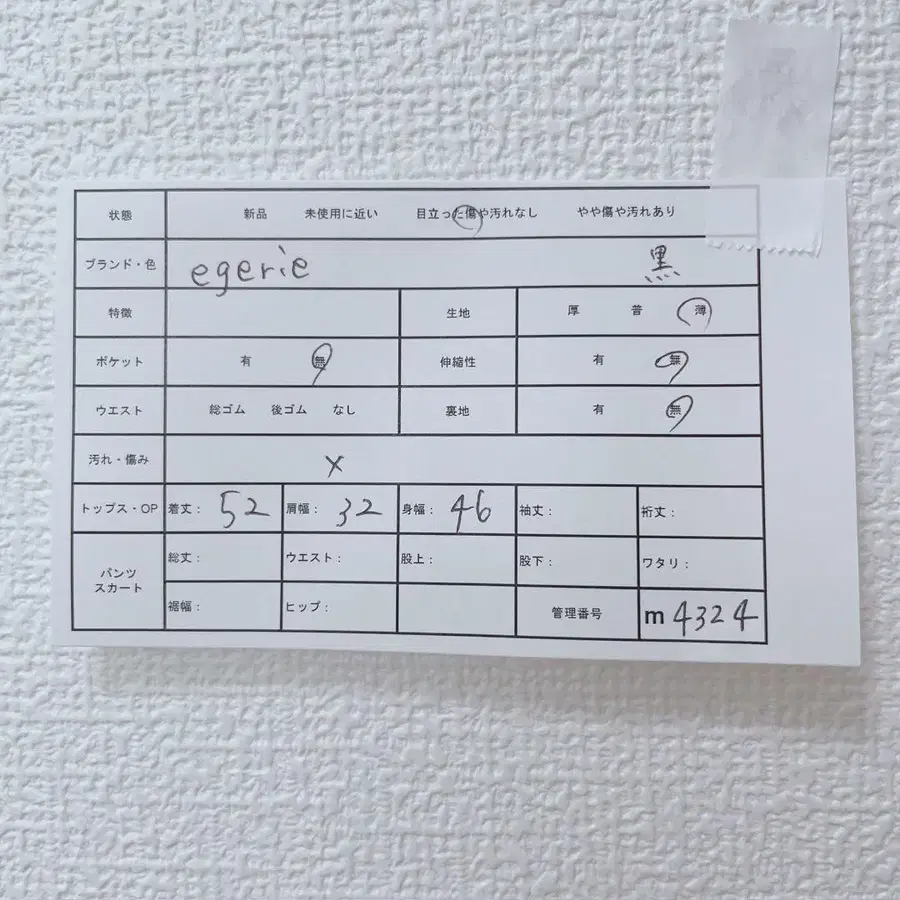 状態 新品 未使用に近い 目立った傷や汚れなし やや傷や汚れあり
ブランド・色 egerie 黒
特徴 生地 厚 普 薄
ポケット 有 無 伸縮性 有 無
ウエスト 総ゴム 後ゴム なし 裏地 有 無
汚れ・傷み ×
トップス・OP 着丈: 52 肩幅: 32 身幅: 46 袖丈: 裄丈:
パンツ スカート 総丈: ウエスト: 股上: 股下: ワタリ:
裾幅: ヒップ: 管理番号 m 4324